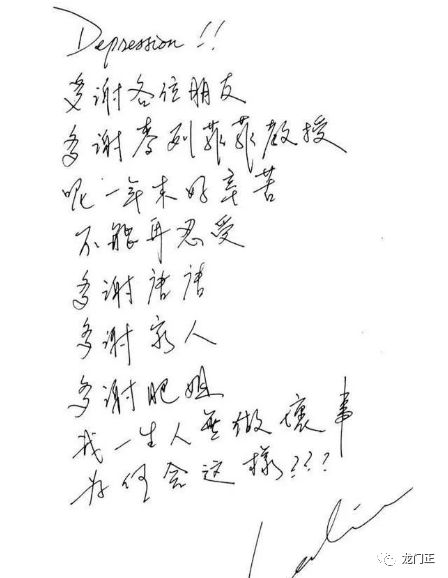 Depression!!
多謝各位朋友
多謝麥列菲菲教授
呢一年來好辛苦
不能再忍受
多謝唐唐
多謝家人
多謝肥姐
我一生人無做壞事
为何会这樣???
Leslie
龙门正